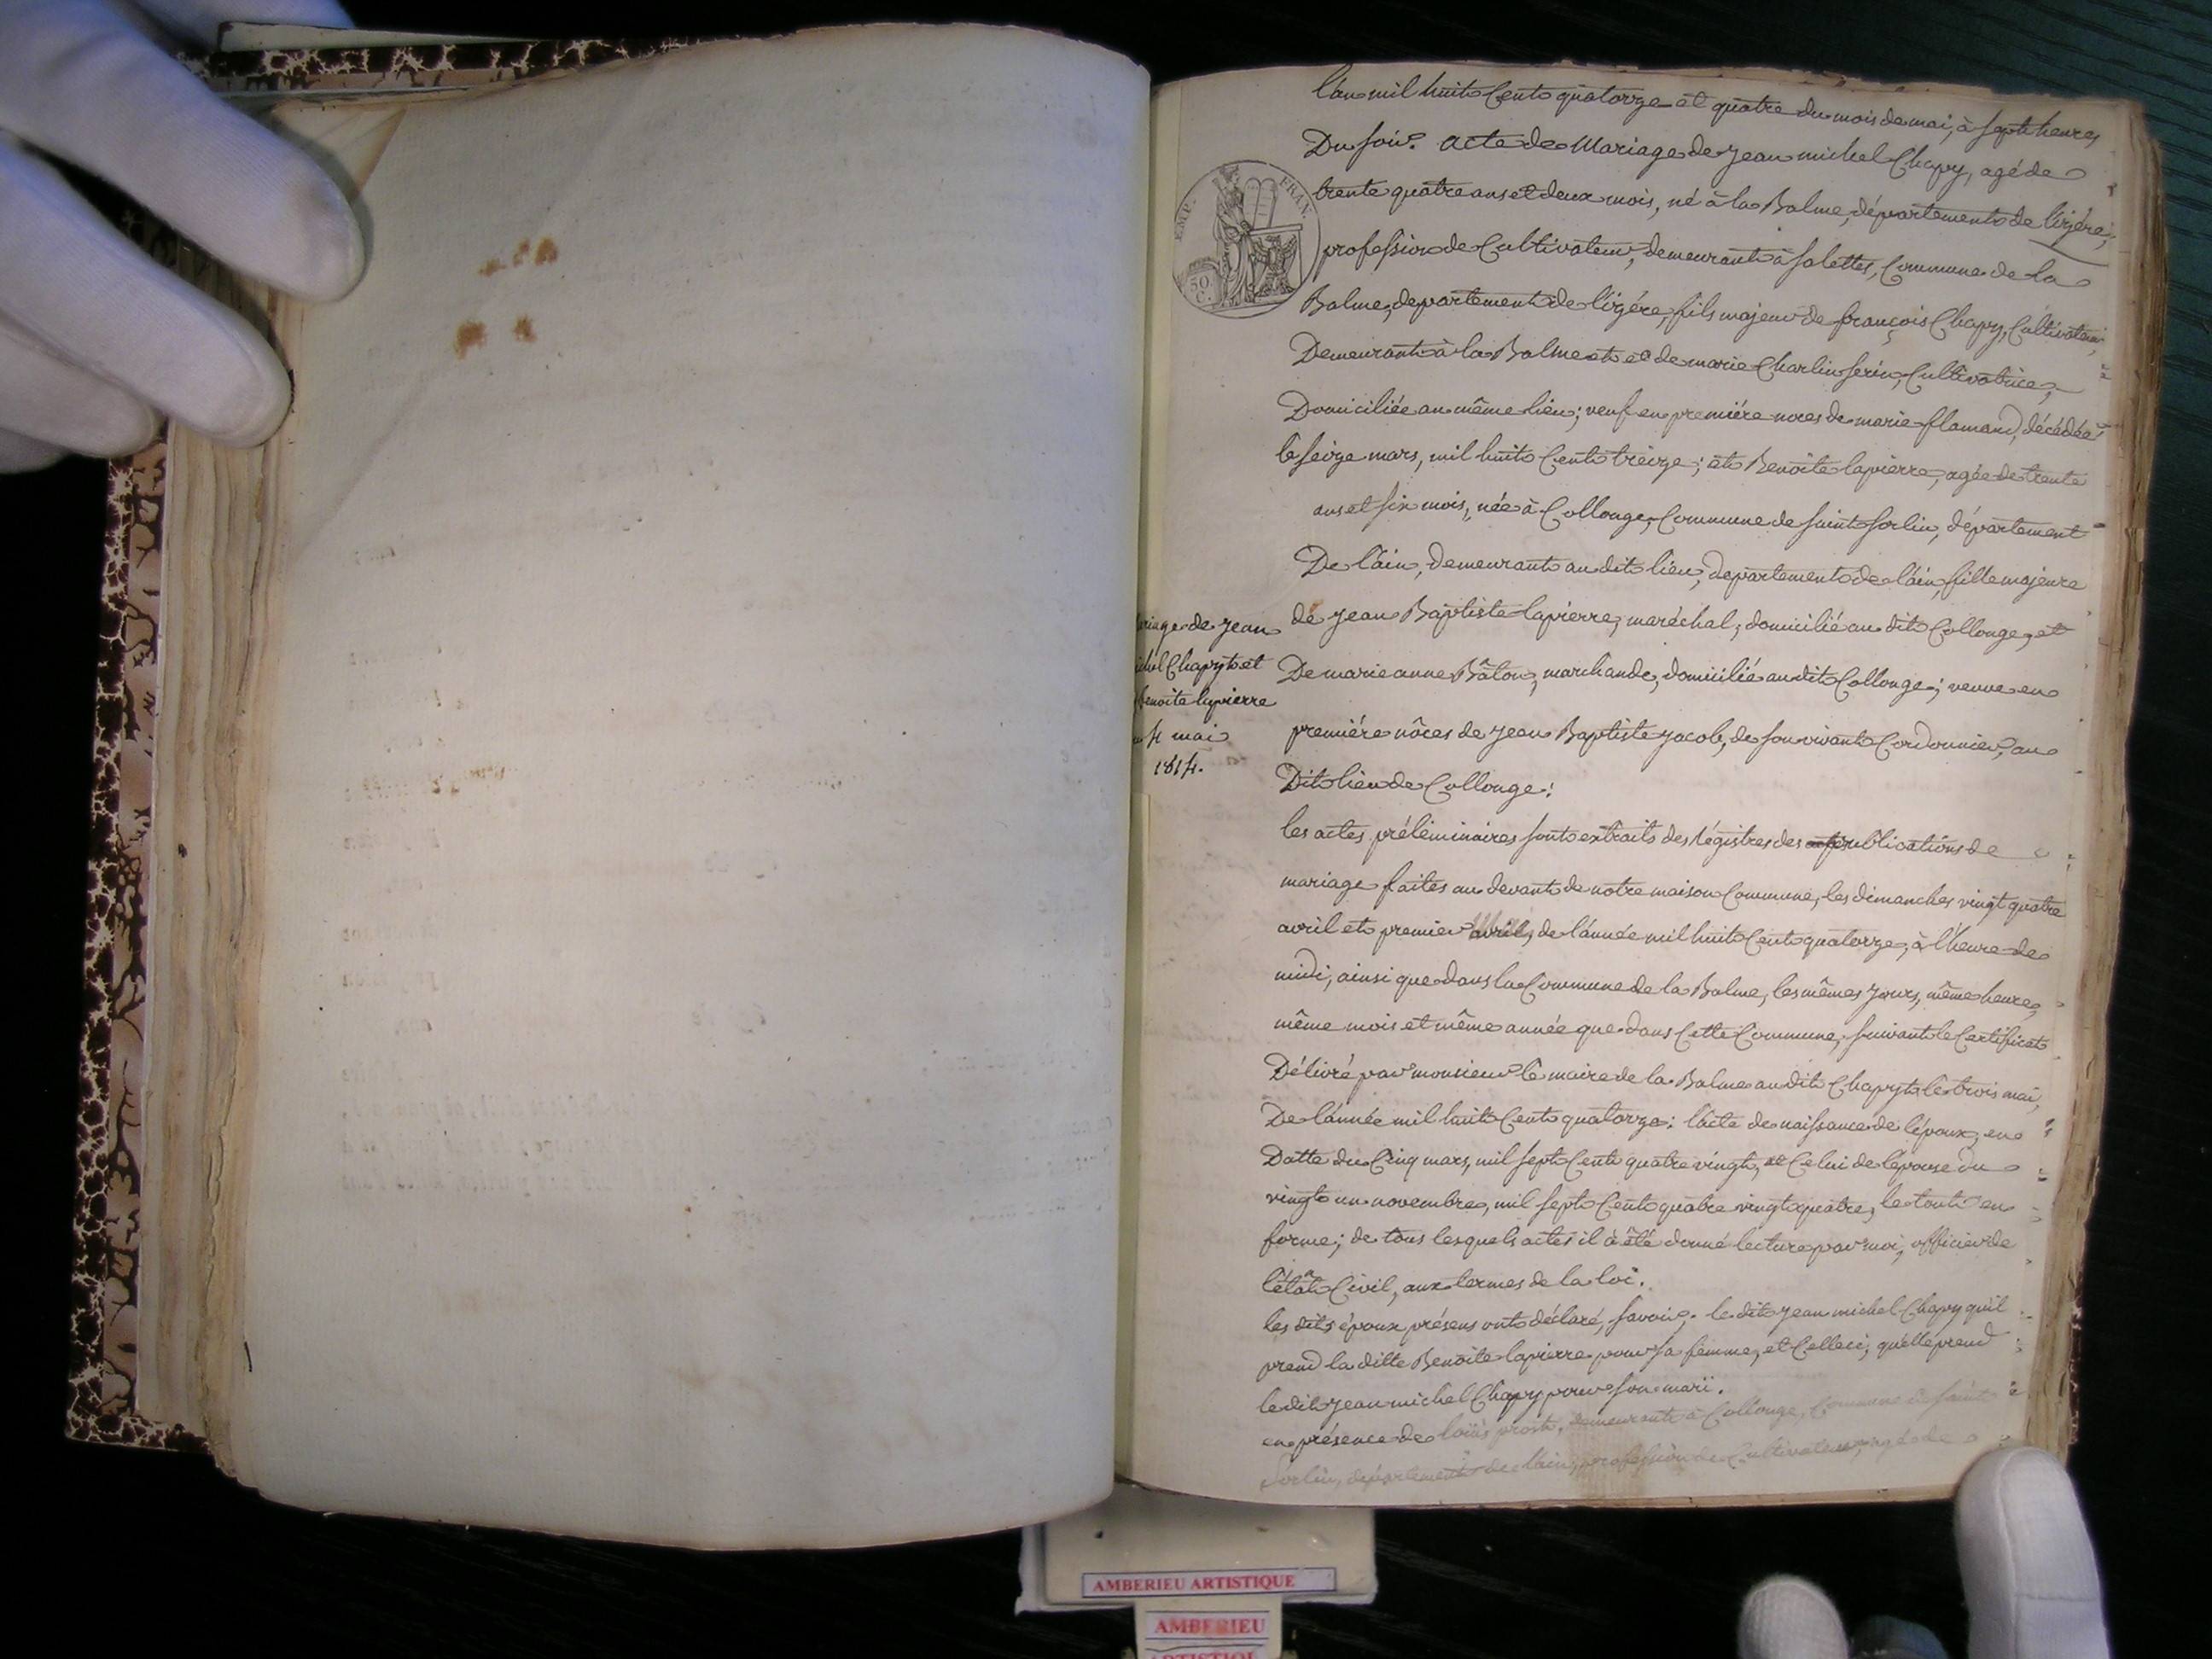 l'an mil huit Cent quatorze et quatre du mois de mai, à sept heures
Du soir. acte de Mariage de jean michel Chapy, agé de
trente quatre ans et deux mois, né à la Balme, département de l'izére,
profession de Cultivateur, demeurant à Salettes, Commune de la
Balme, departement de l'izére, fils majeur de françois Chapy, Cultivateur,
Demeurant à la Balme et de marie Charlin ferin, Cultivatrice,
Domiciliée au même lieu; veuf en premiére noces de marie flamand, décédée
le seize mars, mil huit Cent treize; et Benoite lapierre, agée de trente
ans et six mois, née à Collonge, Commune de Saint Sorlin, département
De l'ain, demeurant au dit lieu, departement de l'ain, fille majeure
de jean Baptiste lapierre, maréchal, domicilié au dit Collonge, et
De marie anne Bâton, marchande, domicilié au dit Collonge; veuve en
premiére nôces de jean Baptiste jacob, de son vivant Cordonnier, au
Dit lieu de Collonge:
mariage de jean
michel Chapyt et
benoite lapierre
4 mai
1814.
les actes préliminaires sont extraits des Régistres des publications de
mariage faites au devant de notre maison Commune, les dimanches vingt quatre
avril et premier avril, de l'année mil huit Cent quatorze, à l'heure de
midi, ainsi que dans la Commune de la Balme, les mêmes jours, même heure,
même mois et même année que dans Cette Commune, suivant le Certificat
Délivré par monsieur le maire de la Balme au dit Chapyt le trois mai,
De l'année mil huit Cent quatorze: l'acte de naissance de l'époux, en
Datte du Cinq mars, mil sept Cent quatre vingt, et Celui de l'épouse du
vingt un novembre, mil sept Cent quatre vingt quatre, le tout en
forme; de tous lesquels actes il à été donné lecture par moi, officier de
l'état Civil, aux termes de la loi.
les dits époux présens ont déclaré, savoir, le dit jean michel Chapy qu'il
prend la ditte Benoite lapierre pour sa femme, et Celleci, qu'elle prend
le dit jean michel Chapy pour son mari.
en présence de loüis prost, demeurant à Collonge, Commune de Saint
Sorlin, département de l'ain, profession de Cultivateur, agé de
EMP. FRAN.
50
C.
AMBERIEU ARTISTIQUE
AMBERIEU
ARTISTIQUE